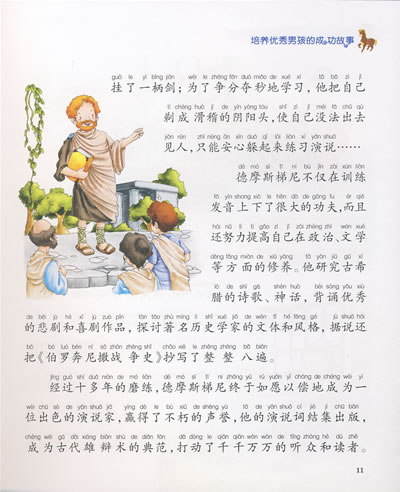 培养优秀男孩的成功故事
guà le yì bǐng jiàn wèi le zhēng fēn duó miǎo de xué xí tā bǎ zì jǐ
挂了一柄剑；为了争分夺秒地学习，他把自己
tì chéng huá jī de yīn yáng tóu shǐ zì jǐ méi fǎ chū qù
剃成滑稽的阴阳头，使自己没法出去
jiàn rén zhǐ néng ān xīn duǒ qǐ lái liàn xí yǎn shuō
见人，只能安心躲起来练习演说……
dé mó sī tí ní bù jǐn zài xùn liàn
德摩斯梯尼不仅在训练
fā yīn shàng xià le hěn dà de gōng fu ér qiě
发音上下了很大的功夫，而且
hái nǔ lì tí gāo zì jǐ zài zhèng zhì wén xué
还努力提高自己在政治、文学
děng fāng miàn de xiū yǎng tā yán jiū gǔ xī
等方面的修养。他研究古希
là de shī gē shén huà bèi sòng yōu xiù
腊的诗歌、神话，背诵优秀
de bēi jù hé xǐ jù zuò pǐn tàn tǎo zhù míng lì shǐ xué jiā de wén tǐ hé fēng gé jù shuō hái
的悲剧和喜剧作品，探讨著名历史学家的文体和风格，据说还
bǎ bó luó bēn ní sā zhàn zhēng shǐ chāo xiě le zhěng zhěng bā biàn
把《伯罗奔尼撒战 争史》抄写了整 整 八遍。
jīng guò shí duō nián de mó liàn dé mó sī tí ní zhōng yú rú yuàn yǐ cháng de chéng wéi yí
经过十多年的磨练，德摩斯梯尼终于如愿以偿地成为一
wèi chū sè de yǎn shuō jiā yíng dé le bù xiǔ de shēng yù tā de yǎn shuō cí jié jí chū bǎn
位出色的演说家，赢得了不朽的声誉，他的演说词结集出版，
chéng wéi gǔ dài xióng biàn shù de diǎn fàn dǎ dòng le qiān qiān wàn wàn de tīng zhòng hé dú zhě
成为古代雄 辩术的典范，打动了千千万万的听众和读者。
11